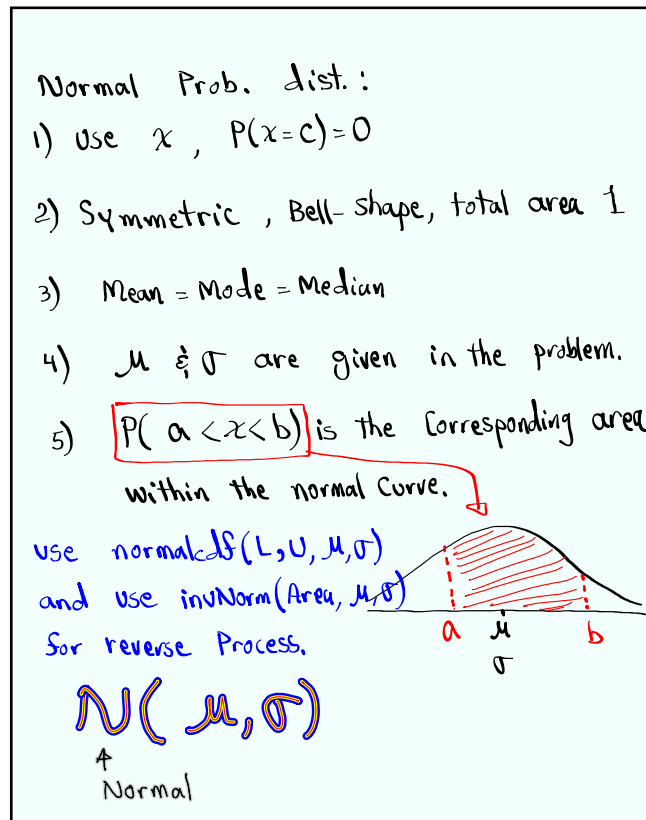 Normal Prob. dist.:
1) Use x, P(x=c)=0
2) Symmetric, Bell-Shape, total area 1
3) Mean = Mode = Median
4) μ & σ are given in the problem.
5) P(a<x<b) is the Corresponding area
within the normal Curve.
use normalcdf(L,U,μ,σ)
and use invNorm(Area,μ,σ)
for reverse Process.
a μ b
σ
N(μ,σ)
Normal